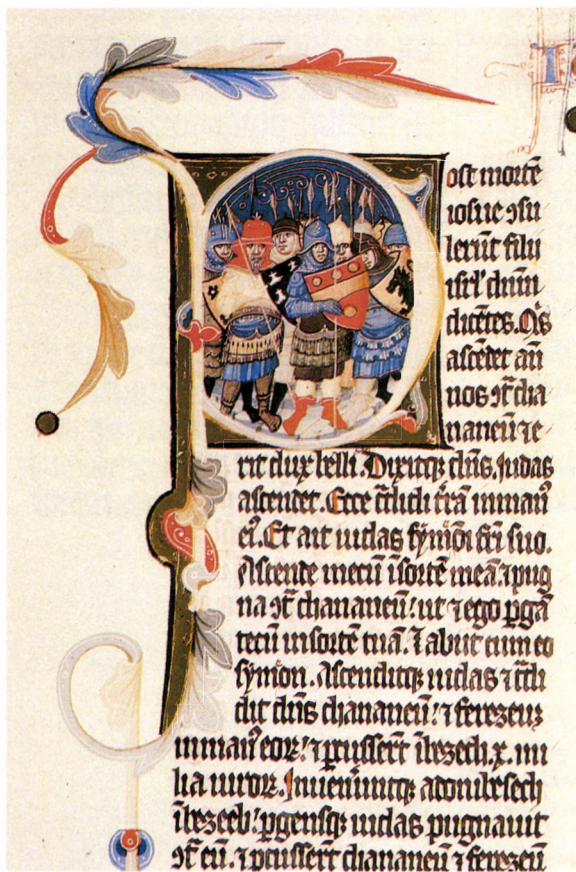 Post mortē
iosue ↄsu
lerūt filii
isrl' dn̄m
dicētes. Q's
ascēdet an̄
nos ↄt̄ cha
naneū ⁊ e
rit dux belli. Dixitqꝫ dn̄s. Judas
ascendet. Ecce t̄didi t̄rā in man'
ei'. Et ait iudas symōi fr̄i suo.
Ascende mecū ī sortē meā. ⁊ pug
na ↄt̄ chananeū: ut ⁊ ego ꝑgā
tecū in sortē tuā. ⁊ abiit cum eo
symōn. Ascenditqꝫ iudas ⁊ t̄di
dit dn̄s chananeū: ⁊ ferezeuꝫ
in man' eoꝝ: ⁊ ꝑcusserūt ī bezech .x. mi
lia uiroꝝ. Inuenūntqꝫ adonibesech
ī bezech: pgensqꝫ iudas pugnauit
ↄt̄ eū. ⁊ pcusserūt chananeū ⁊ ferezeū